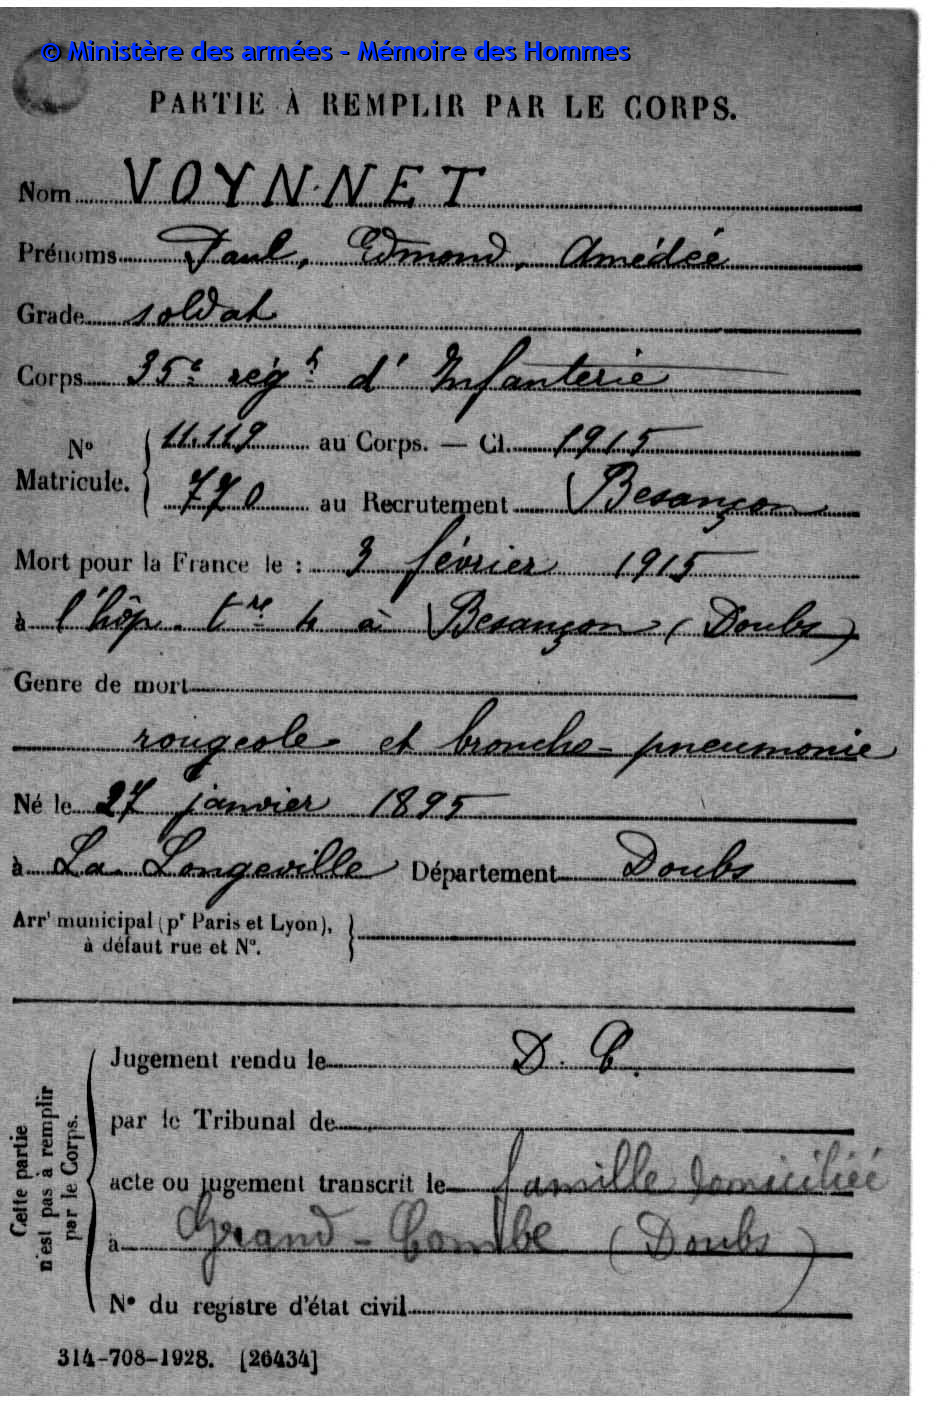 © Ministère des armées - Mémoire des Hommes
PARTIE À REMPLIR PAR LE CORPS.
Nom VOYNNET
Prénoms Paul, Edmond, Amédée
Grade soldat
Corps 35e régt d'Infanterie
No Matricule. 11.119 au Corps. — Cl. 1915
770 au Recrutement Besançon
Mort pour la France le : 3 février 1915
à l'hôp. tre 4 à Besançon (Doubs)
Genre de mort
rougeole et broncho-pneumonie
Né le 27 janvier 1895
à La Longeville Département Doubs
Arrt municipal (pr Paris et Lyon),
à défaut rue et No.
Cette partie
n'est pas à remplir
par le Corps.
Jugement rendu le D. C.
par le Tribunal de
acte ou jugement transcrit le famille domiciliée
à Grand-Combe (Doubs)
No du registre d'état civil
314-708-1928. [26434]